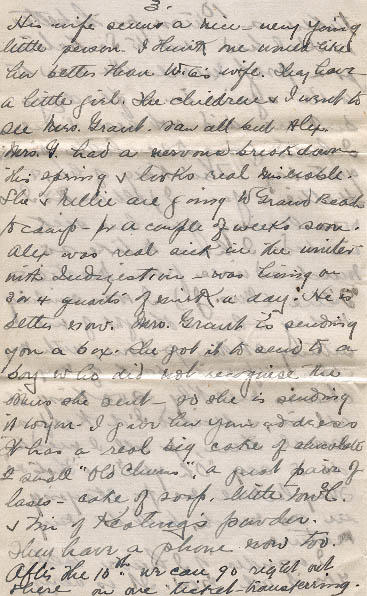 3.
His wife seems a nice - very young
little person. I think one would like
her better than Will's wife. They have
a little girl. The children & I went to
see Mrs. Grant. saw all but Alex.
Mrs. G. had a nervous breakdown
this spring & looks real miserable.
She & Nellie are going to Grand Beach
to camp - for a couple of weeks soon.
Alex was real sick in the winter
with Indigestion - was living on
3 or 4 quarts of milk a day. He is
better now. Mrs. Grant is sending
you a box. She got it to send to a
boy who did not recognise the
ones she sent - so she is sending
it to you - I gave her your address
It has a real big cake of chocolate
2 small "Old Chums", a pair of
laces - cake of soap. little towel.
& tin of Keating's powder.
They have a phone now too.
After the 10th we can go right out
there on one ticket - transferring.